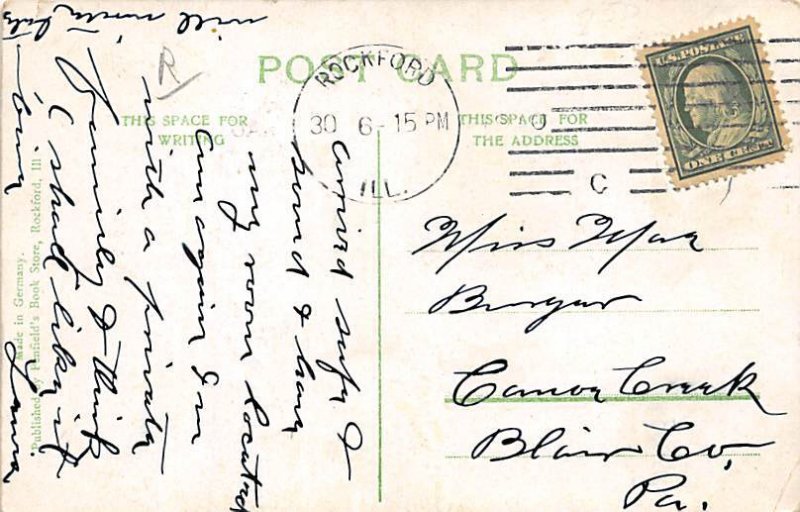 POST CARD
THIS SPACE FOR
WRITING
THIS SPACE FOR
THE ADDRESS
ROCKFORD
30 6-15 PM
ILL.
U.S. POSTAGE
ONE CENT
R
Arrived safe &
sound & have
my room located
Am again in
with a private
family & think
I shall like it
Laura
will write
Miss Mae
Burger
Canoe Creek
Blair Co,
Pa.
Made in Germany.
Published Penfield's Book Store, Rockford, Ill